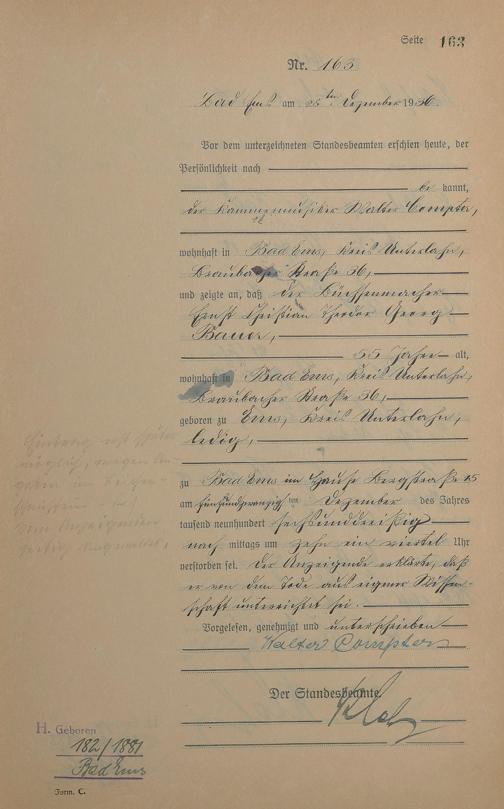 Seite 163
Nr. 163
Bad Ems am ten Dezember 1936.
Vor dem unterzeichneten Standesbeamten erschien heute, der
Persönlichkeit nach
be kannt,
der Kammermusiker Walter Compter,
wohnhaft in Bad Ems, Kreis Unterlahn,
Braubacher Straße 36,
und zeigte an, daß der Büchsenmacher
Ernst Christian Theodor Georg
Bauer,
55 Jahre alt,
wohnhaft in Bad Ems, Kreis Unterlahn,
Braubacher Straße 36,
geboren zu Ems, Kreis Unterlahn,
ledig,
zu Bad Ems im Hause Bergstraße 15
am fünfundzwanzigsten Dezember des Jahres
tausend neunhundert sechsunddreißig
nach mittags um zehn ein viertel Uhr
verstorben sei. Der Anzeigende erklärte, daß
er von dem Tode aus eigener Wissen-
schaft unterrichtet sei.
Vorgelesen, genehmigt und unterschrieben
Walter Compter
Der Standesbeamte.
H. Geboren
182/1881
Bad Ems
Form. C.